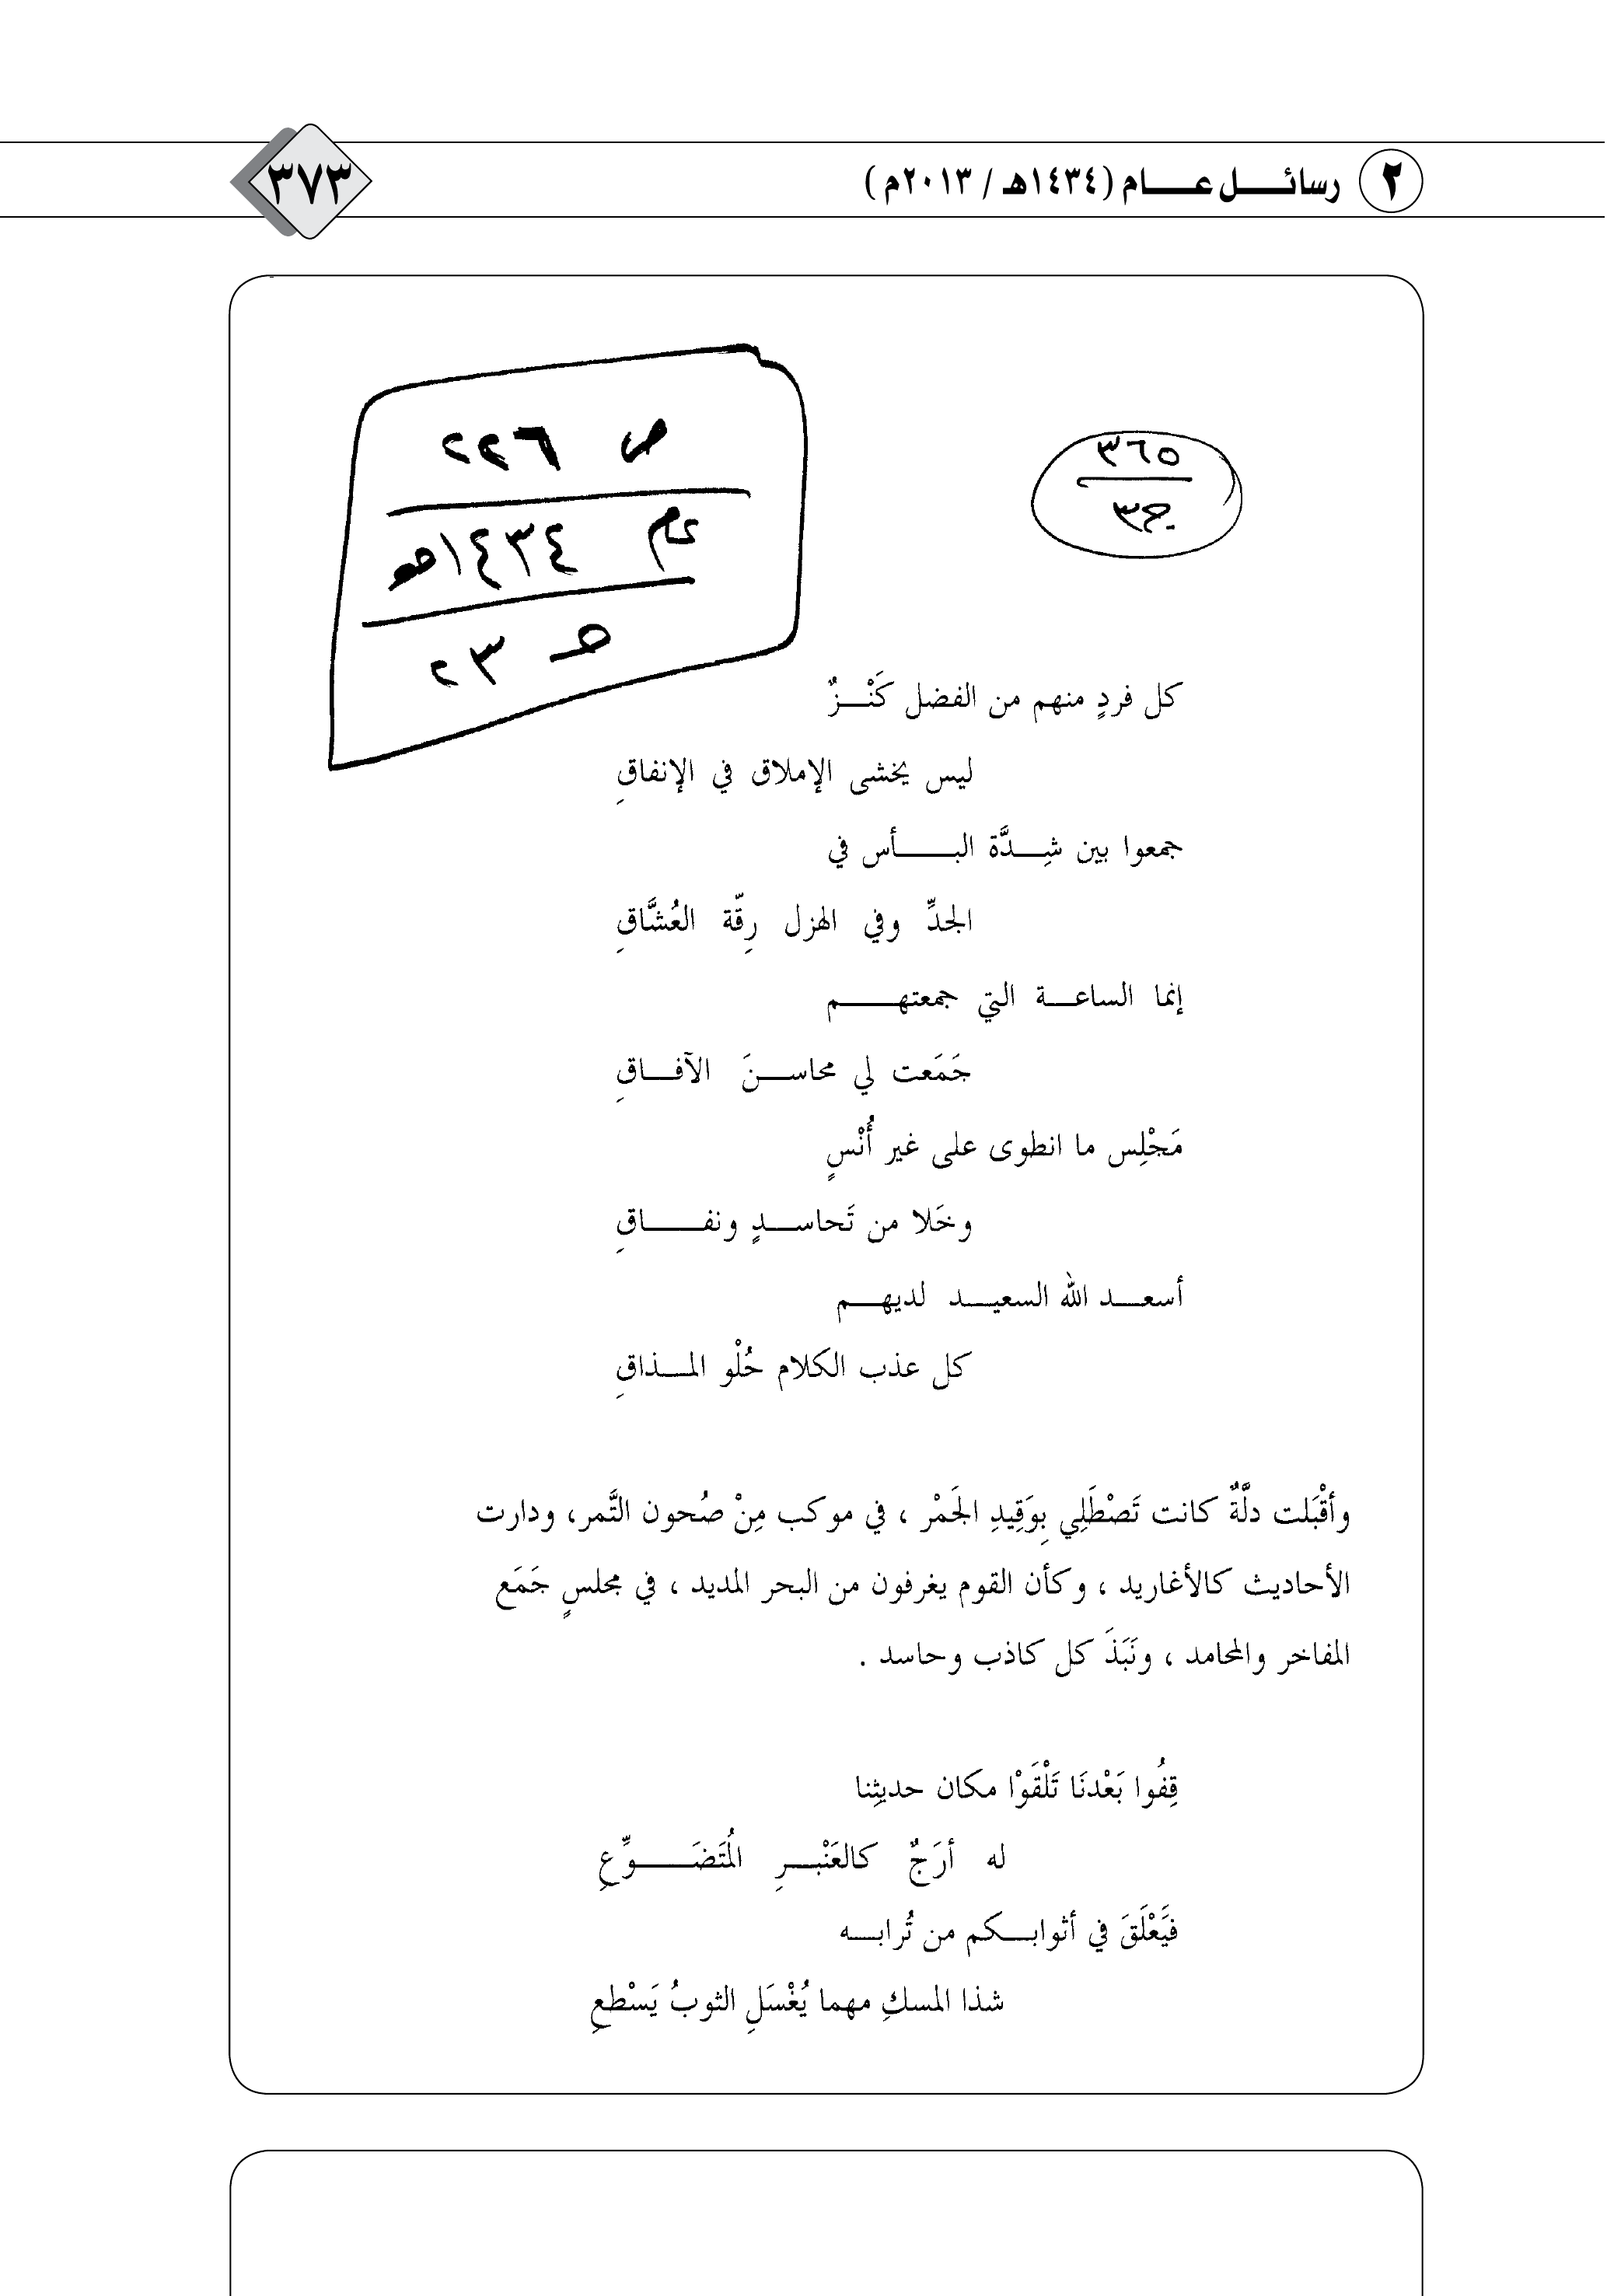 ٢ رسائل عام (١٤٣٤هـ / ٢٠١٣م)
٣٧٣
٣٦٥
ج٣
ص ٢٢٦
عام ١٤٣٤هـ
٢٣
كل فردٍ منهم من الفضل كَنْزٌ
ليس يخشى الإملاق في الإنفاقِ
جمعوا بين شِدَّة البأس في
الجدِّ وفي الهزل رِقّة العُشَّاقِ
إنما الساعة التي جمعتهم
جَمَعت لي محاسنَ الآفاقِ
مَجْلِس ما انطوى على غير أُنْسٍ
وخَلا من تَحاسدٍ ونفاقِ
أسعد الله السعيد لديهم
كل عذب الكلام حُلْو المذاقِ
وأقْبَلت دلَّةٌ كانت تَصْطَلِي بِوَقِيدِ الجَمْر ، في موكب مِنْ صُحون التَّمر، ودارت
الأحاديث كالأغاريد ، وكأن القوم يغرفون من البحر المديد ، في مجلسٍ جَمَع
المفاخر والمحامد ، ونَبَذَ كل كاذب وحاسد .
قِفُوا بَعْدنَا تَلْقَوْا مكان حديثِنا
له أرَجٌ كالعَنْبرِ المُتَضَوِّعِ
فيَعْلَقَ في أثوابكم من تُرابه
شذا المسكِ مهما يُغْسَلِ الثوبُ يَسْطعِ